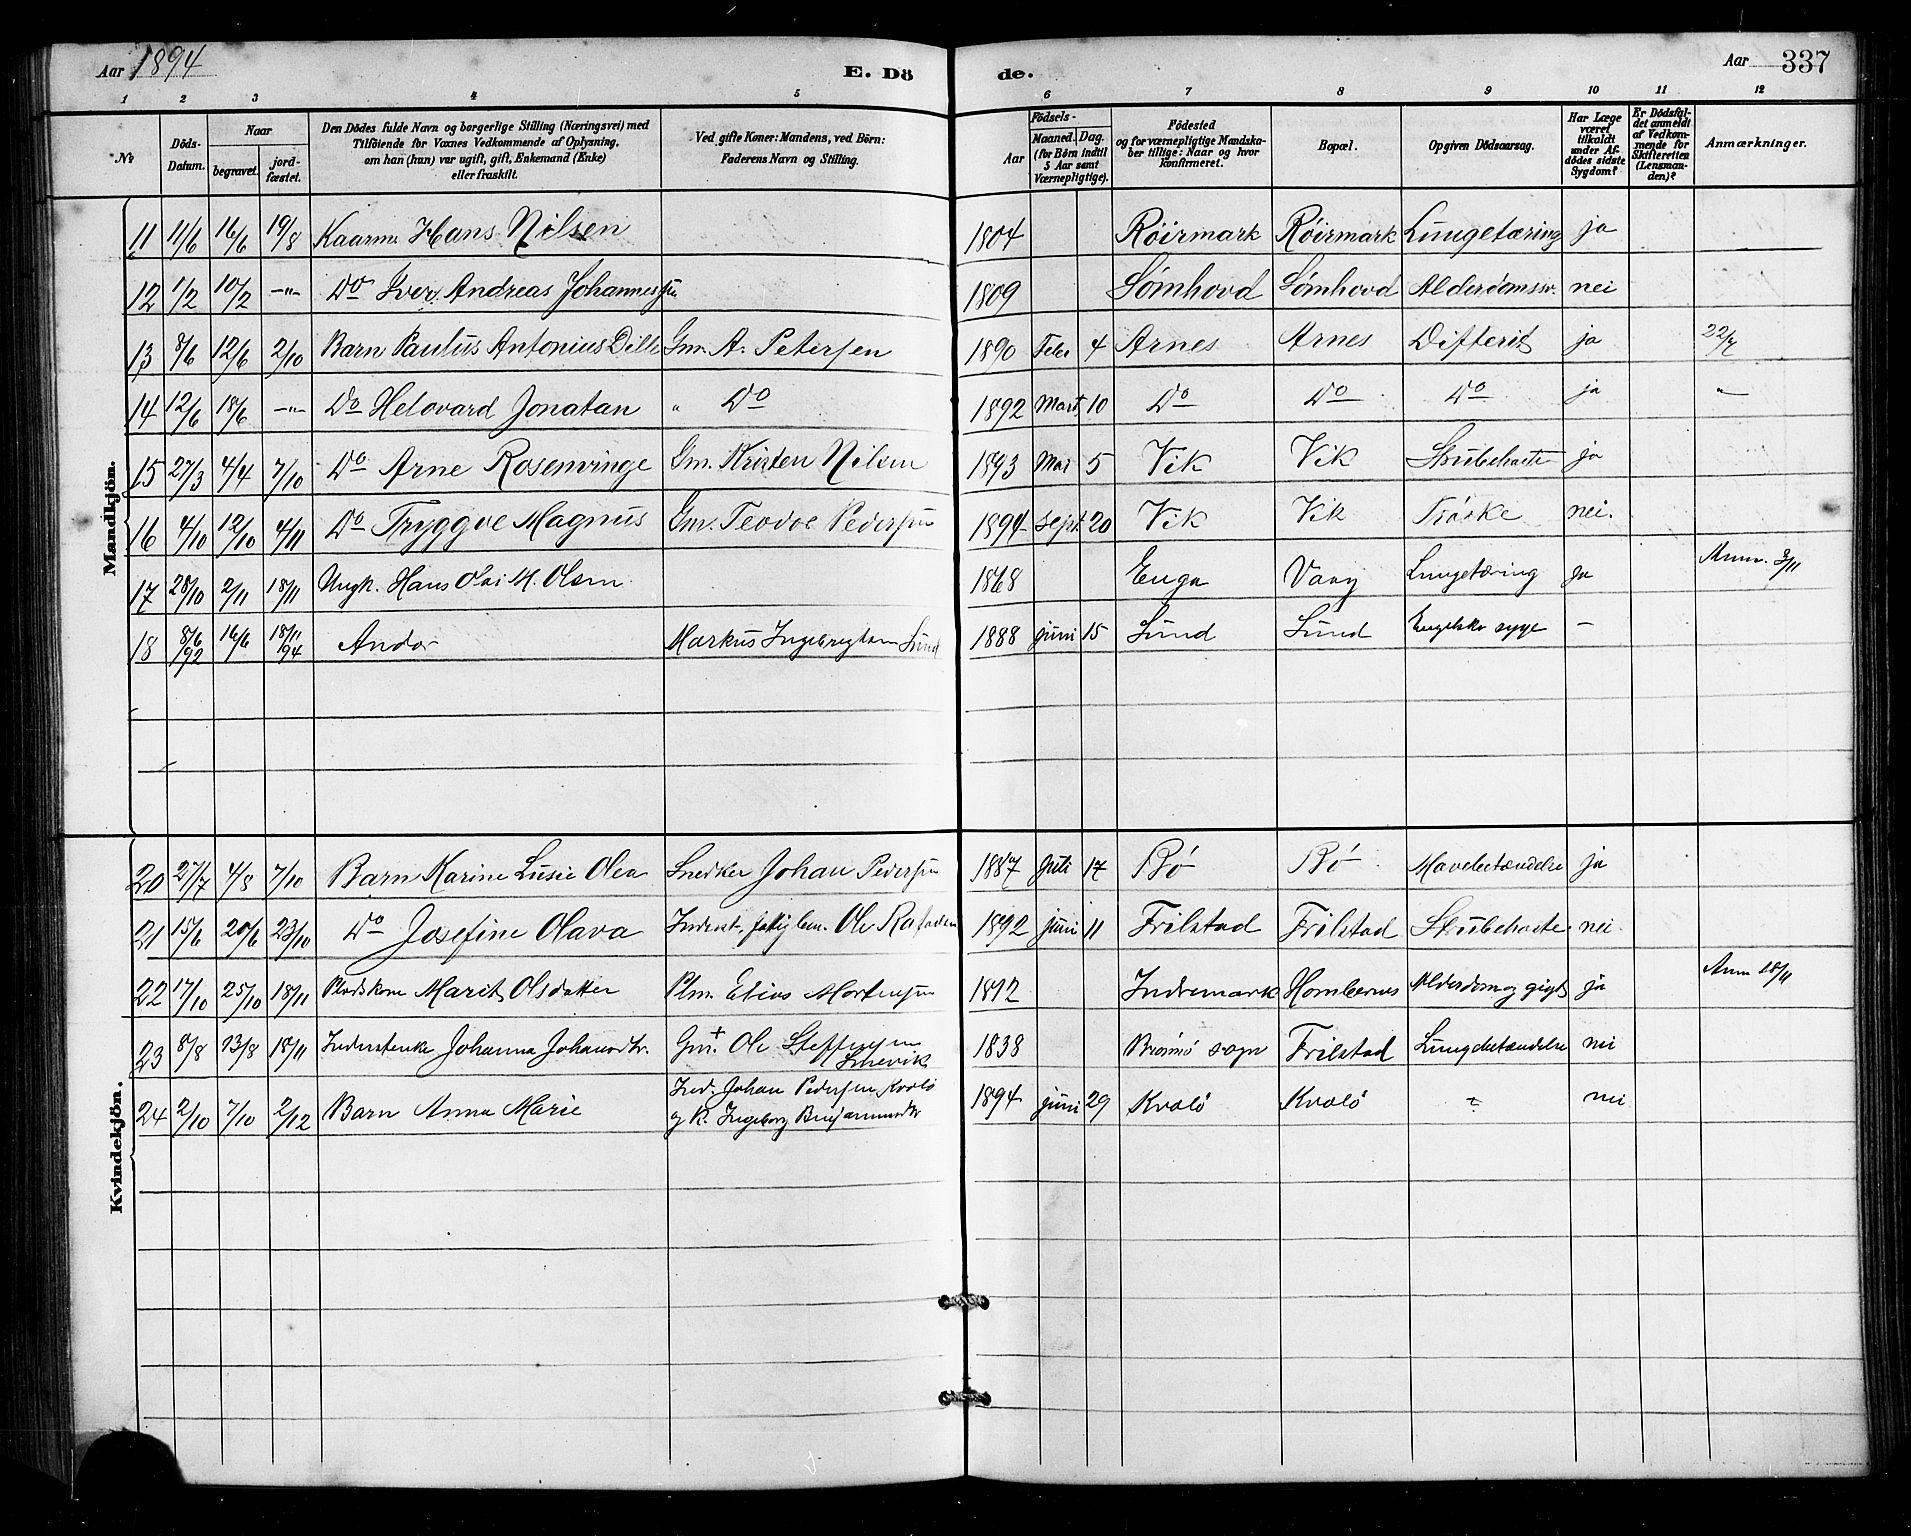 Aar 1894
E. Dö
de.
Aar 337
1 2 3 4 5 6 7 8 9 10 11 12
№
Döds-Datum.
Naar
begravet.
jord-fæstet.
Den Dödes fulde Navn og borgerlige Stilling (Næringsvei) med
Tilföiende for Voxnes Vedkommende af Oplysning,
om han (hun) var ugift, gift, Enkemand (Enke)
eller fraskilt.
Ved gifte Koner: Mandens, ved Börn:
Faderens Navn og Stilling.
Födsels-
Aar
Maaned. Dag.
(for Börn indtil
5 Aar samt
Værnepligtige).
Födested
og for værnepligtige Mandska-
ber tillige: Naar og hvor
konfirmeret.
Bopæl.
Opgiven Dödsaarsag.
Har Læge
været
tilkaldt
under Af-
dödes sidste
Sygdom?
Er Dödsfal-
det anmeldt
af Vedkom-
mende for
Skifteretten
(Lensman-
den)?
Anmærkninger.
Mandkjön.
11 11/6 16/6 19/8 Kaarm. Hans Nilsen 1804 Röirmark Röirmark Lungetæring ja
12 1/2 10/2 -"- Do Iver Andreas Johannessen 1809 Sömhovd Sömhovd Alderdomssv. nei
13 8/6 12/6 2/10 Barn Paulus Antonius Dille Gm. A. Petersen 1890 Febr 4 Arnes Arnes Difterit ja 22/7
14 12/6 18/6 -"- Do Helovard Jonatan " Do 1892 Marts 10 Do Do Do ja "
15 27/3 4/4 7/10 Do Arne Rosenvinge Gm. Kristen Nilsen 1893 Mai 5 Vik Vik Strubehoste ja
16 4/10 12/10 4/11 Do Tryggve Magnus Gm. Teodor Pedersen 1894 Sept 20 Vik Vik Tröske nei.
17 28/10 2/11 18/11 Ungk. Hans Olai M. Olsen 1868 Enga Vaag Lungetæring ja Anm. 3/11
18 8/6 92 16/6 18/11 94 Andor Markus Ingebrigtsen Sund 1888 juni 15 Sund Sund Engelske syge -
Kvindekjön.
20 27/7 4/8 7/10 Barn Karine Lusie Olea Snedker Johan Pedersen 1887 Juli 17 Bö Bö Mavebetændelse ja
21 15/6 20/6 23/10 Do Josefine Olava Inderst, fattiglem. Ole 1892 juni 11 Frilstad Frilstad Strubehoste nei.
22 17/10 25/10 18/11 Pladskone Marit Olsdatter Plm. Elias Mortensen 1812 Indremark Hombornes Alderdom og gigt ja Anm 18/11
23 8/8 13/8 18/11 Inderstenke Johanna Johansdtr. Gm. + Ole Steffensen
Snevik 1838 Brönnö sogn Frilstad Lungebetændelse nei
24 2/10 7/10 2/12 Barn Anna Marie Ind. Johan Pedersen Kvalö
og K. Ingeborg Benjaminsdtr 1894 juni 29 Kvalö Kvalö ? nei